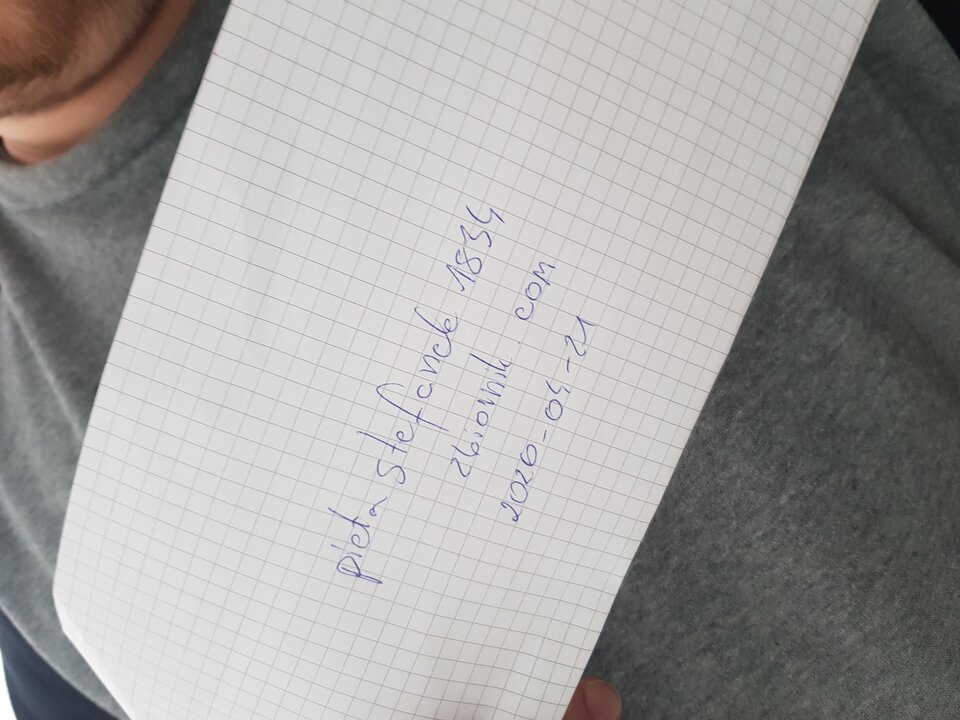 pieta stefanek 1834
zbiornik.com
2020-04-21